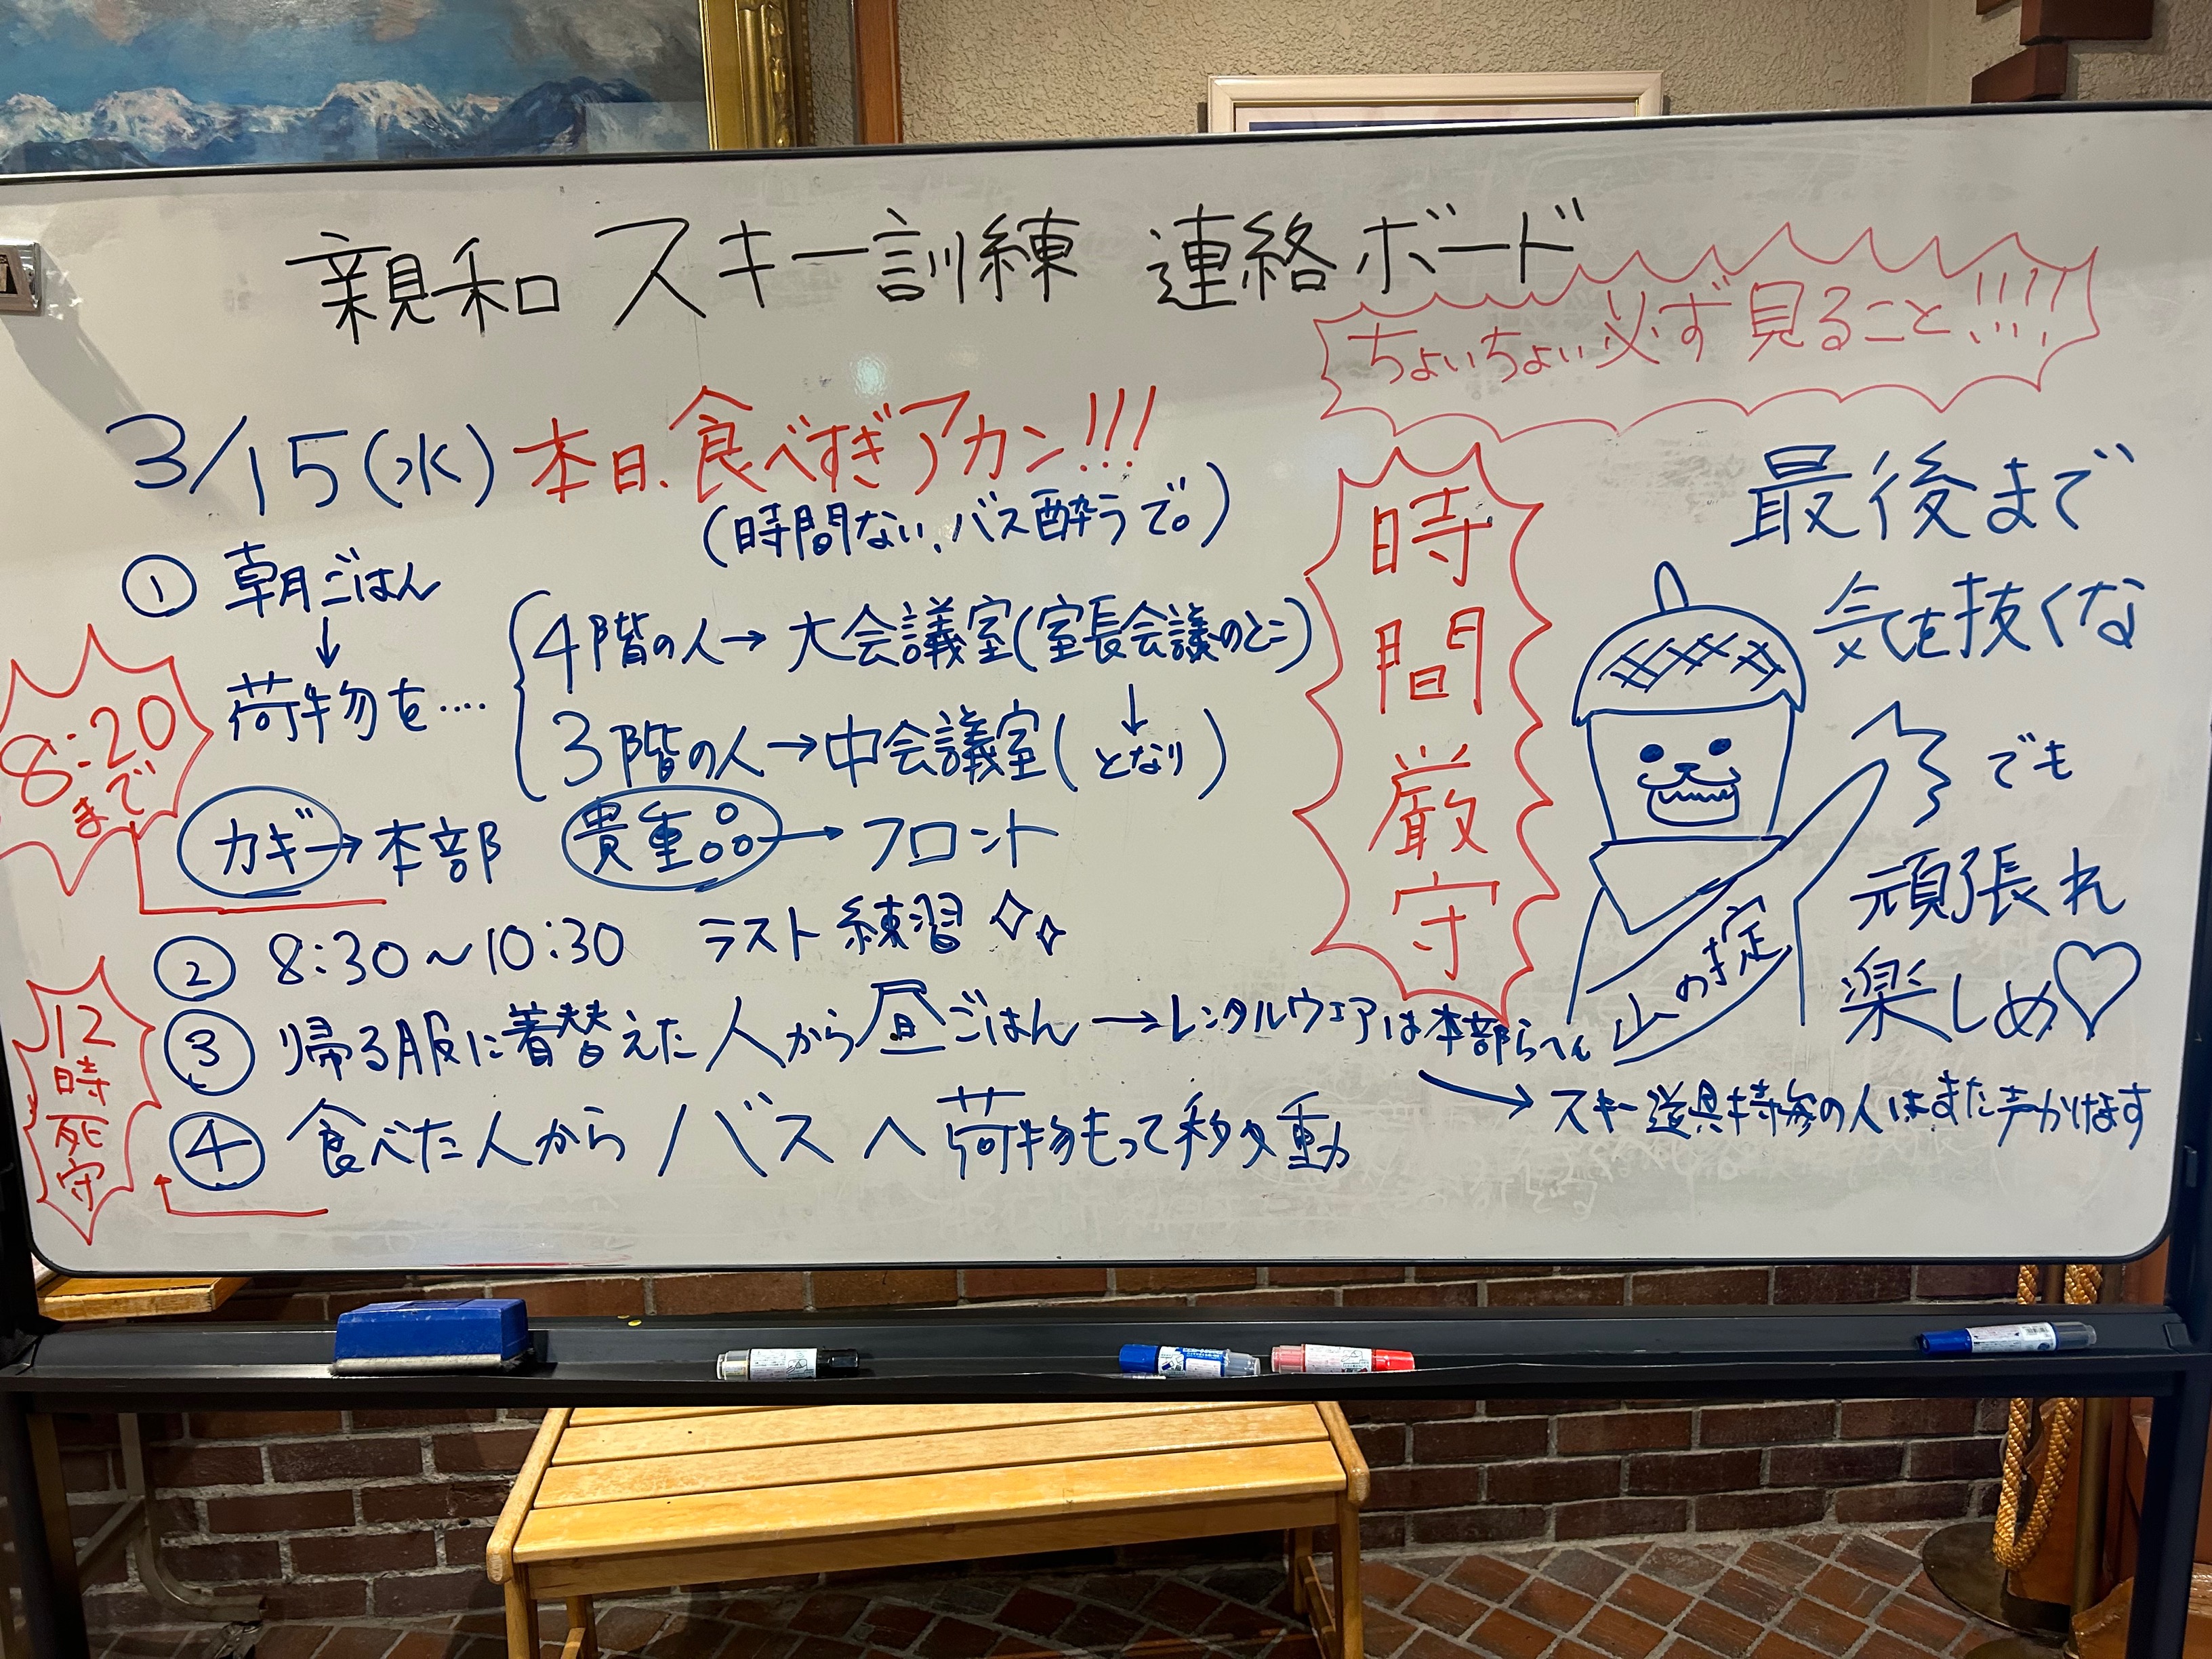 親和 スキー訓練 連絡ボード
ちょいちょい必ず見ること!!!!
3/15(水) 本日、食べすぎアカン!!!
(時間ない、バス酔うで。)
① 朝ごはん
↓
荷物を‥‥
4階の人→ 大会議室(室長会議のとこ)
↓
3階の人→中会議室(となり)
8:20
まで
カギ→本部 貴重品→フロント
② 8:30~10:30 ラスト練習
③ 帰る服に着替えた人から昼ごはん→レンタルウェアは本部らへん
→スキー道具持参の人はまた声かけます
④ 食べた人からバスへ荷物もって移動
12
時
死
守
時
間
厳
守
最後まで
気を抜くな
でも
頑張れ
楽しめ♡
山の掟